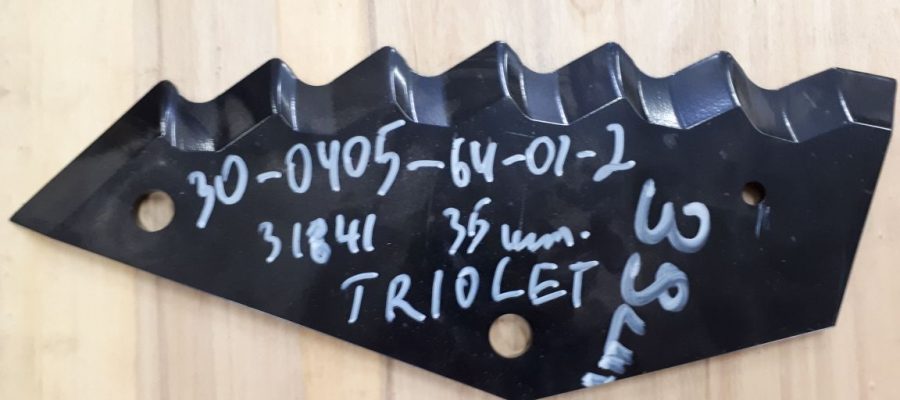 30-0405-64-01-2
31841 35 шт.
TRIOLET